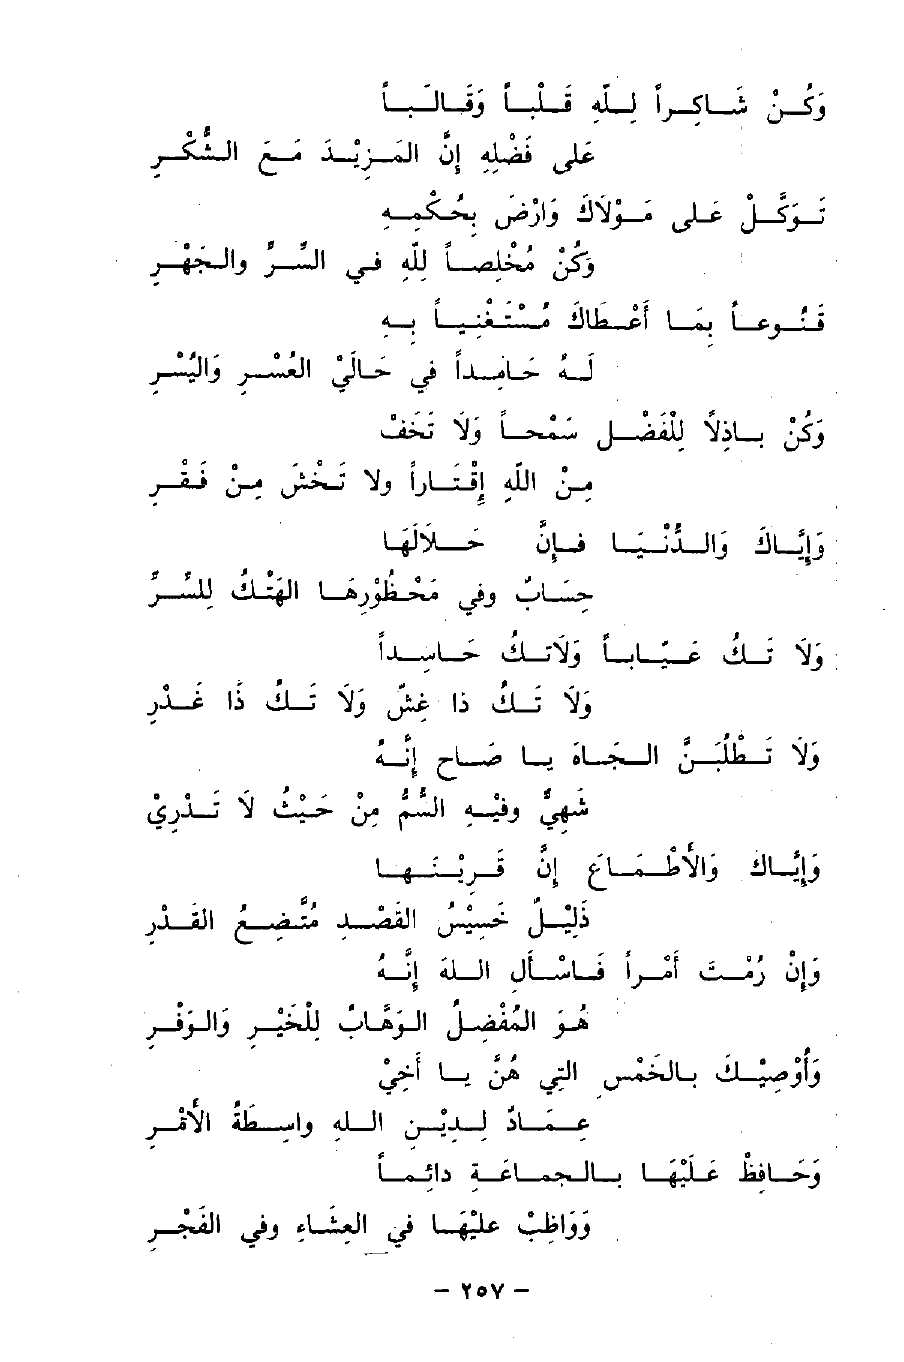 وَكُنْ شَاكِراً لِلّهِ قَلْباً وَقَالَباً
عَلى فَضْلِهِ إنَّ المَزِيْدَ مَعَ الشُّكْرِ
تَوَكَّلْ عَلى مَوْلاَكَ وَارْضَ بِحُكْمِهِ
وَكُنْ مُخْلِصاً لِلّهِ في السِّرِّ والجَهْرِ
قَنُوعاً بِمَا أَعْطَاكَ مُسْتَغْنِياً بِهِ
لَهُ حَامِداً في حَالَيْ العُسْرِ وَاليُسْرِ
وَكُنْ بِاذِلاً لِلْفَضْلِ سَمْحاً وَلَا تَخَفْ
مِنَ اللّهِ إِقْتَاراً ولا تَخْشَ مِنْ فَقْرِ
وَإِيَّاكَ وَالدُّنْيَا فإنَّ حَلَالَهَا
حِسَابٌ وفي مَحْظُوْرِهَا الهَتْكُ لِلسِّرِّ
وَلَا تَكُ عَيَّاباً وَلَاتكُ حَاسِداً
وَلَا تَكُ ذا غِشّ وَلَا تَكُ ذَا غَدْرِ
وَلَا تَطْلُبَنَّ الجَاهَ يا صَاحِ إِنَّهُ
شَهِيٌّ وفيْهِ السُّمُّ مِنْ حَيْثُ لَا تَدْرِيْ
وَإِيَّاكَ وَالأَطْمَاعَ إنَّ قَرِيْنَهَا
ذَلِيْلٌ خَسِيْسُ القَصْدِ مُتَّضِعُ القَدْرِ
وَإنْ رُمْتَ أَمْراً فَاسْألِ اللهَ إِنَّهُ
هُوَ المُفْضِلُ الوَهَّابُ لِلْخَيْرِ وَالوَفْرِ
وَأُوْصِيْكَ بِالخَمْسِ التي هُنَّ يا أَخِيْ
عِمَادٌ لِدِيْنِ اللهِ واسِطَةُ الأَمْرِ
وَحَافِظْ عَلَيْهَا بِالجماعَةِ دائِماً
وَوَاظِبْ عليْهَا في العِشَاءِ وفي الفَجْرِ
- ٢٥٧ -